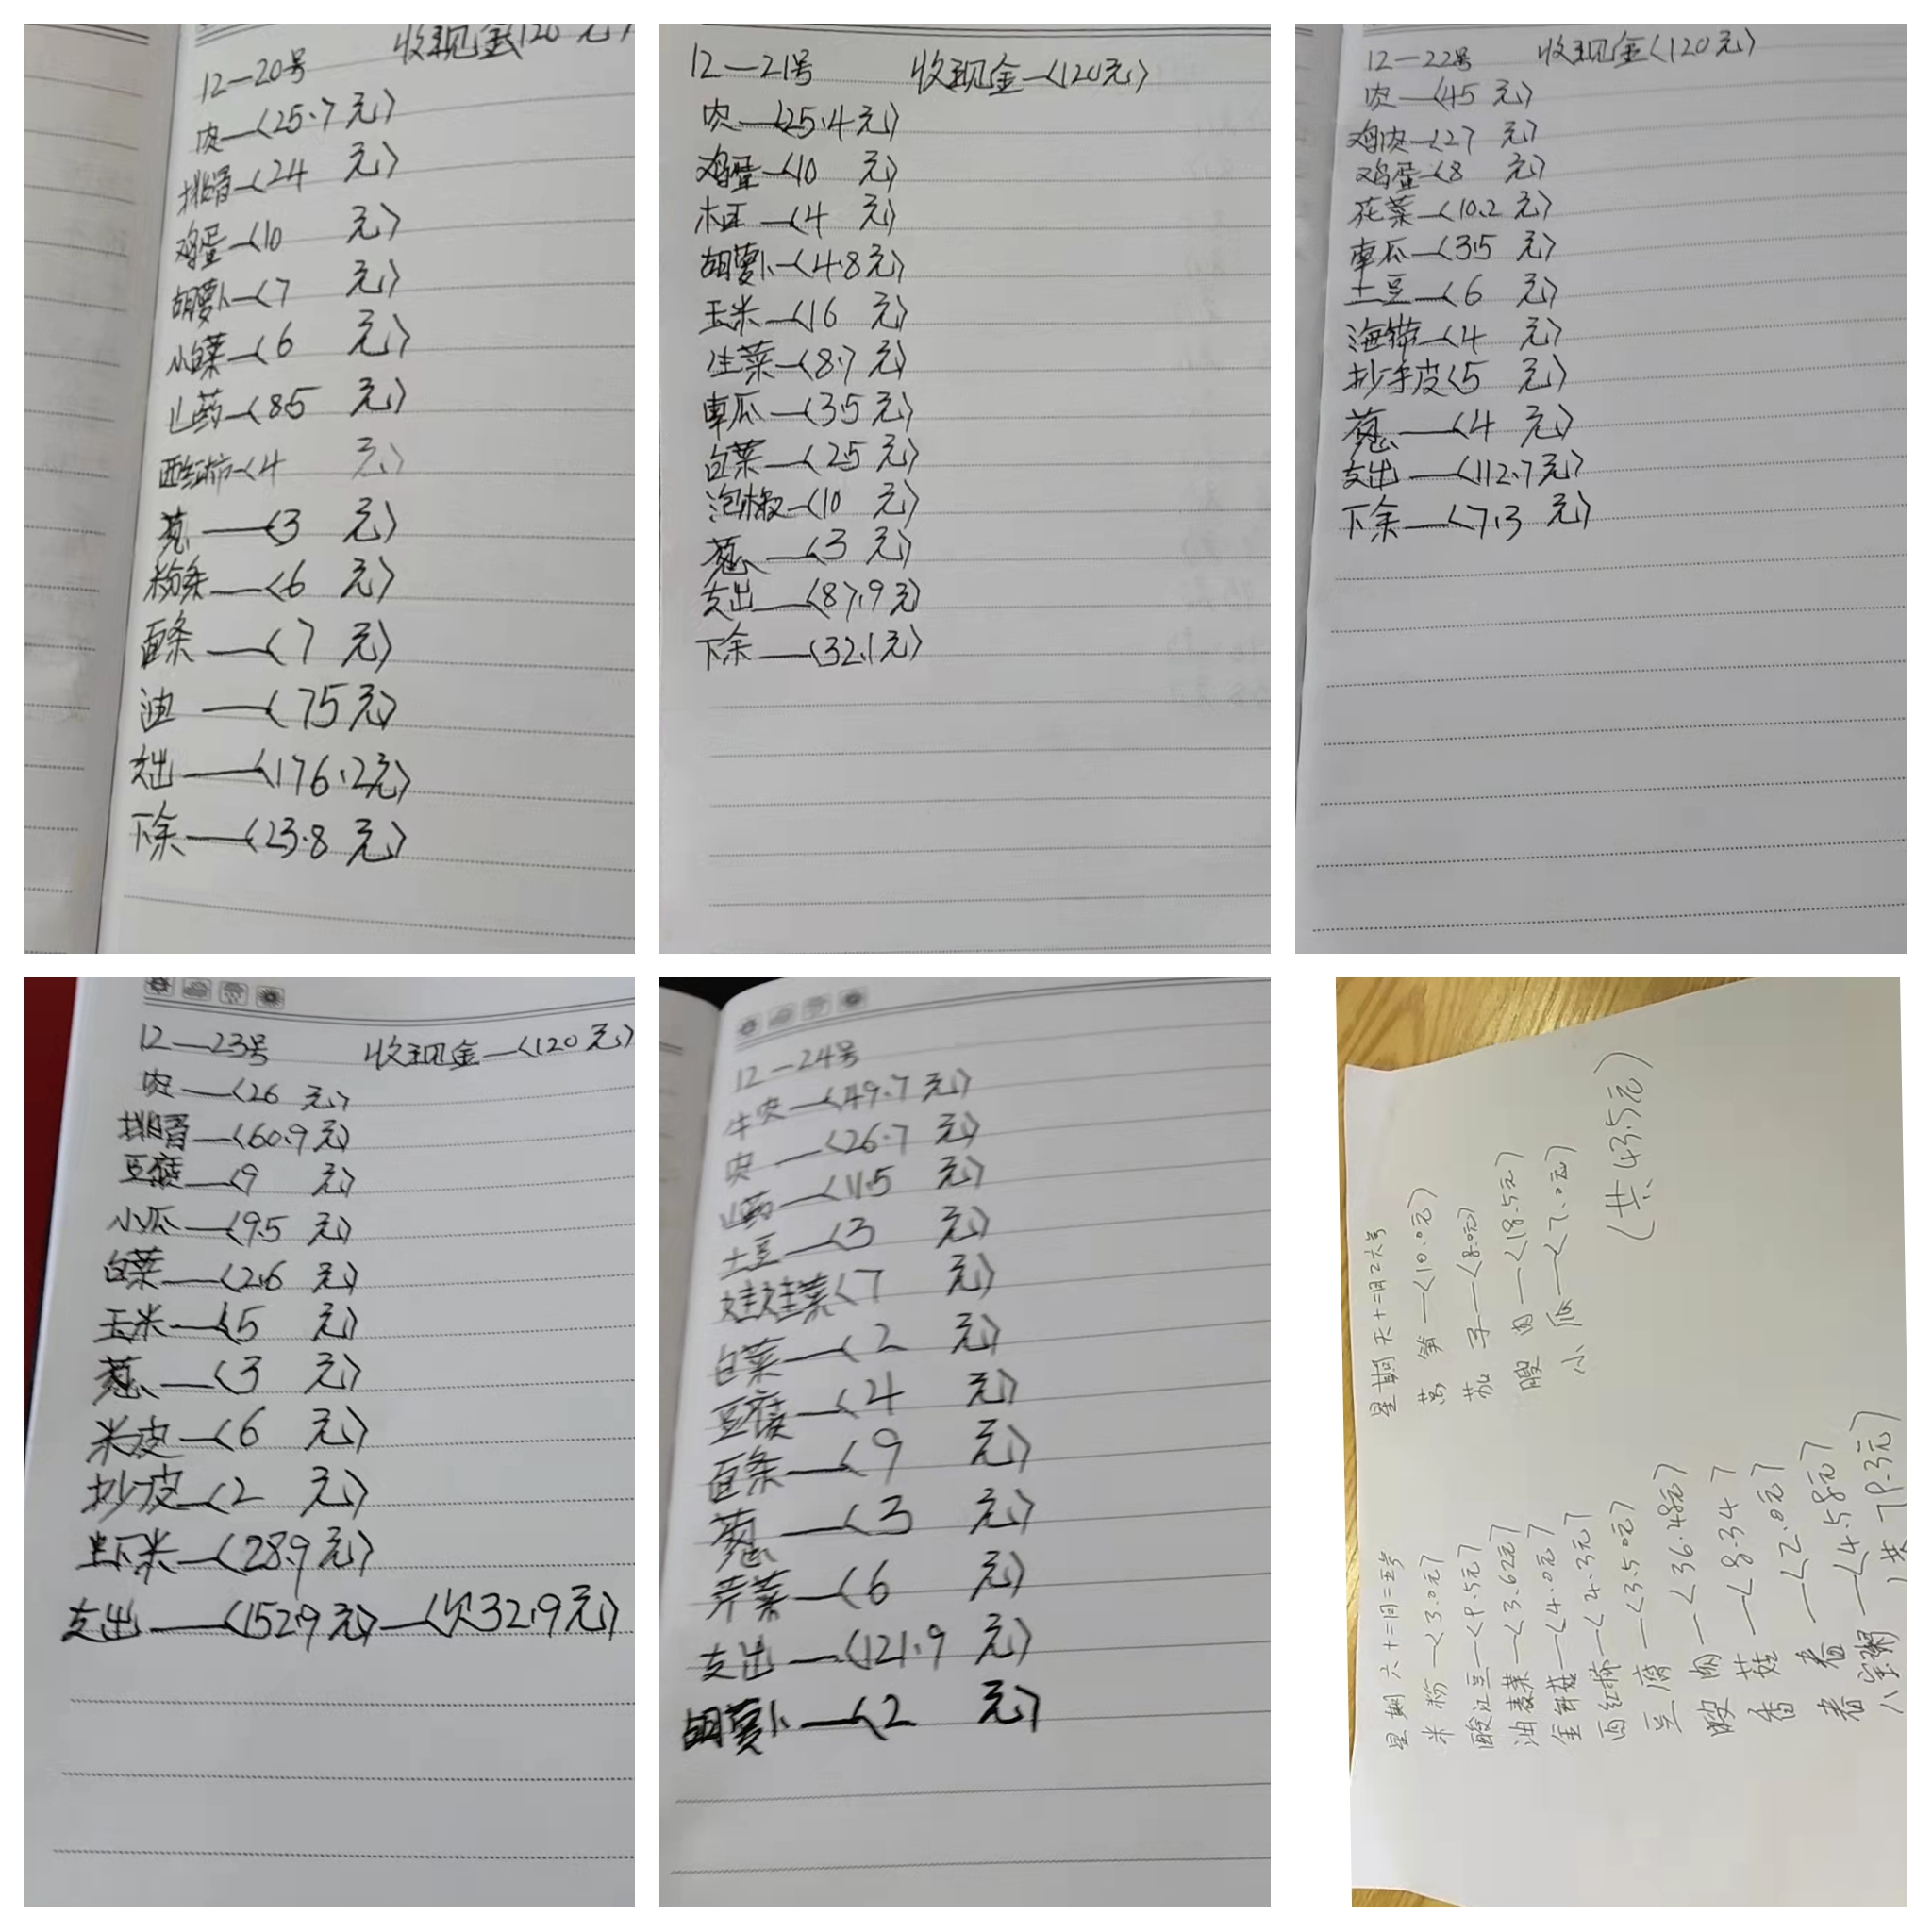 12—20号 收现金(120元)
肉—(25.7元)
排骨—(24 元)
鸡蛋—(10 元)
胡萝卜—(7 元)
小白菜—(6 元)
山药—(8.5 元)
西红柿—(4 元)
葱—(3 元)
粉条—(6 元)
面条—(7 元)
油—(75元)
支出—(176.2元)
下余—(23.8元)
12—21号 收现金—(120元)
肉—(25.4元)
鸡蛋—(10 元)
—(4 元)
胡萝卜—(4.8元)
玉米—(16 元)
生菜—(8.7元)
南瓜—(3.5元)
白菜—(2.5元)
泡椒—(10 元)
葱—(3 元)
支出—(87.9元)
下余—(32.1元)
12—22号 收现金(120元)
肉—(45元)
鸡肉—(27 元)
鸡蛋—(8 元)
花菜—(10.2元)
南瓜—(3.5元)
土豆—(6 元)
海带—(4 元)
抄手皮(5 元)
葱—(4 元)
支出—(112.7元)
下余—(7.3元)
12—23号 收现金—(120元)
肉—(26元)
排骨—(60.9元)
豆腐—(9 元)
小瓜—(9.5元)
白菜—(2.6元)
玉米—(5 元)
葱—(3 元)
米皮—(6 元)
抄皮—(2 元)
虾米—(28.9元)
支出—(152.9元)—(欠32.9元)
12—24号
牛肉—(49.7元)
肉—(26.7元)
山药—(11.5元)
土豆—(3 元)
娃娃菜(7 元)
白菜—(2 元)
豆腐—(4 元)
面条—(9 元)
葱—(3 元)
芹菜—(6 元)
支出—(121.9元)
胡萝卜—(2 元)
星期六十二月二五号
米粉—(3.0元)
酸江豆—(9.5元)
油麦菜—(3.62元)
金针菇—(4.0元)
西红柿—(4.3元)
豆腐—(3.50元)
瘦肉—(36.48元)
香菇—(8.34)
—(2.0元)
八宝粥—(4.58元)
(共79.3元)
星期天十二月二六号
莴笋—(10.0元)
茄子—(8.0元)
瘦肉—(18.5元)
小瓜—(7.0元)
(共43.5元)